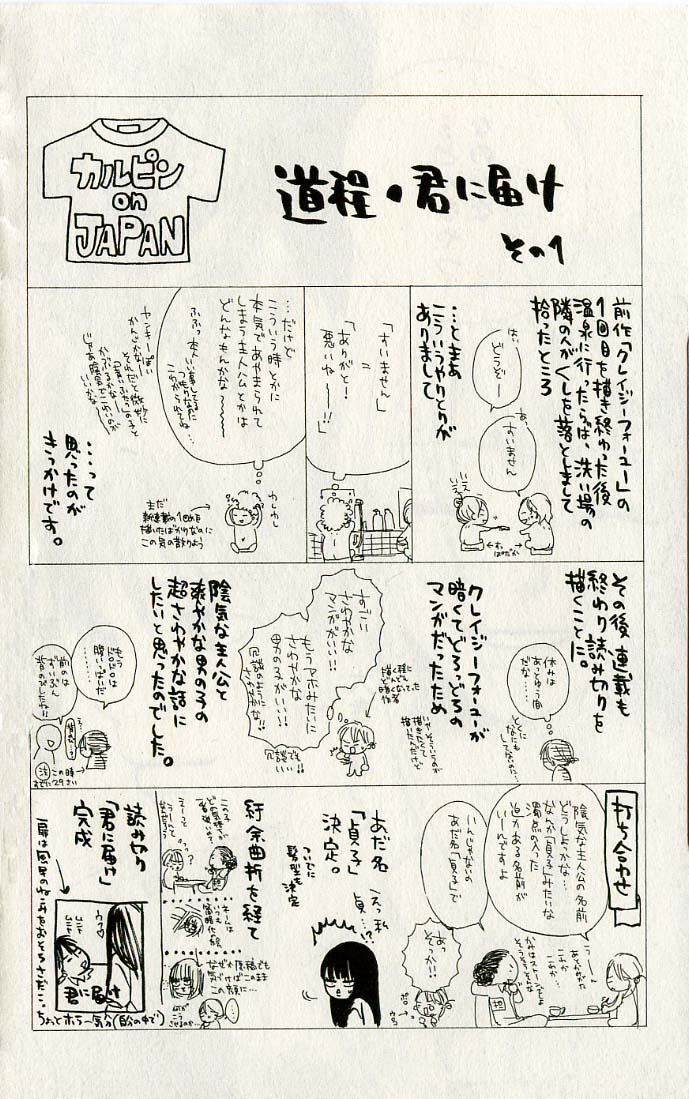 カルピン
on
JAPAN
道程・君に届け
その1
前作「クレイジーフォーユー」の
1回目を描き終わった後
温泉に行ったらば、洗い場の
隣の人がくしを落としまして
拾ったところ
はい
どうぞー
あっ
すいません
…ときあ
こういうやりとりが
ありまして
「すいません」
=
「ありがと!
悪いねー!!」
…だけど
こういう時とかに
本気であやまられて
しまう主人公とかは
どんなもんかな〜
わしわし
まだ
新連載の1回めを
描いたばかりなのに
この気の散りよう
…って
思ったのが
きっかけです。
その後、連載も
終わり読み切りを
描くことに。
休みは
あっとゆう間
だな……
とくに
なにも
してない…
クレイジーフォーユーが
暗くてどろっどろの
マンガだったため
すごい
さわやかな
マンガがいい!!
もうアホみたいに
さわやかな
男の子がいい!!
冗談のように
さわやかな!!
冗談でも
いい!!
陰気な主人公と
爽やかな男の子の
超さわやかな話に
したいと思ったのでした。
もう
ドロドロは
腹いっぱいだ
……
打ち合わせ
陰気な主人公の名前
どうしよっかな…
なんか「貞子」みたいな
迫力ある名前が
いーんですよ
濁点の入った
うーーん
いんじゃないの
あだ名「貞子」で
あっ
そっか!!
あだ名
「貞子」
決定。
ついでに
髪型も決定
えっ私
貞…!?
紆余曲折を経て
ネームは
いつも
簡略化絵
なぜか原稿でも
気づけばこのまま
この顔に…
読み切り
「君に届け」
完成
君に届け
扉は風早のねこみをおそうさだこ。
ちょっとホラー気分(自分の中で)